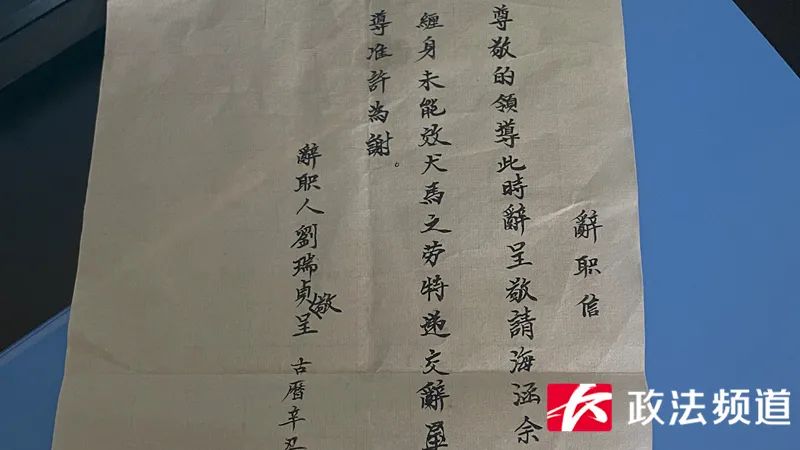 辭职信
尊敬的領導此時辭呈敬請海涵余
纏身未能效犬馬之劳特递交辭呈
尊准許為謝。
辭职人劉瑞貞敬呈 古曆辛丑
政法频道